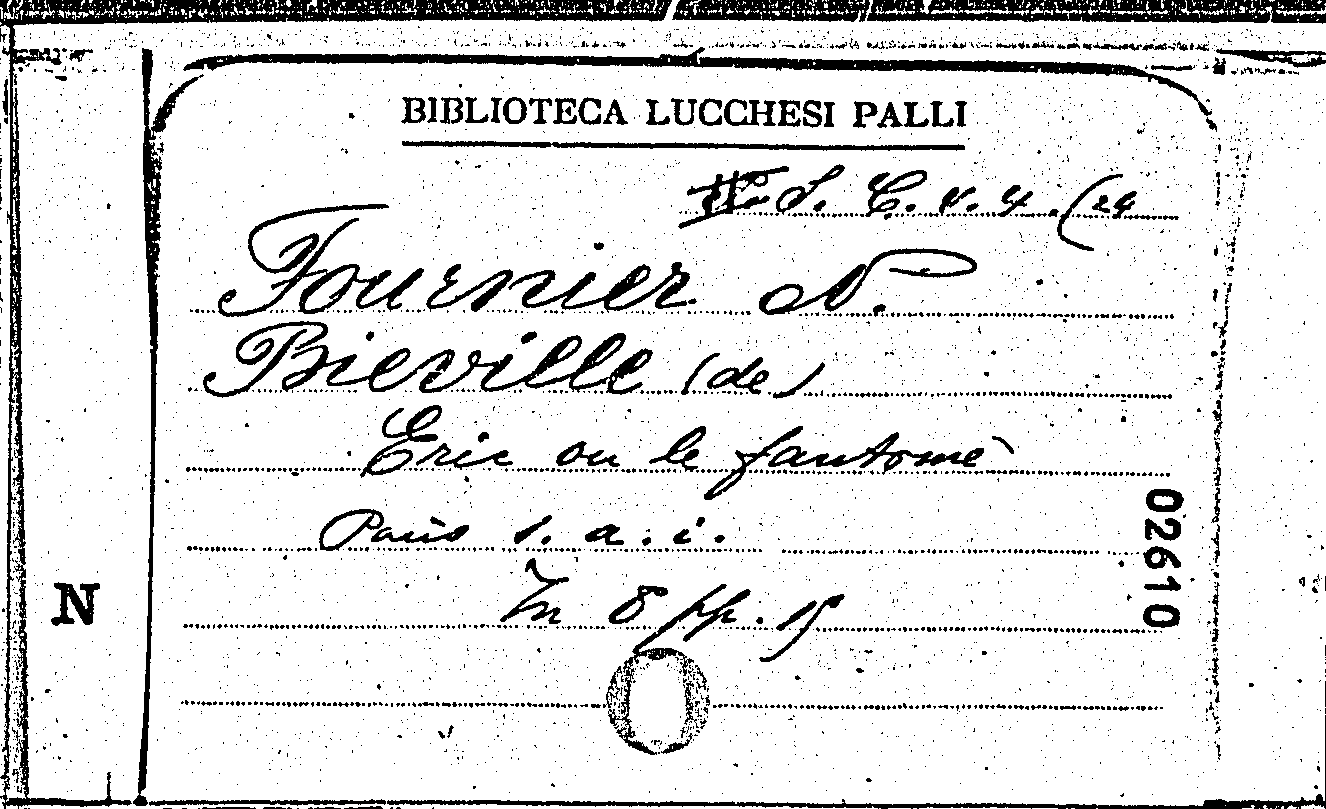 BIBLIOTECA LUCCHESI PALLI
S. C. 4. (24
Fournier N.
Bieville (de)
Eric ou le fantome
Paris s. a. i.
In 8 pp. 15
02610
N